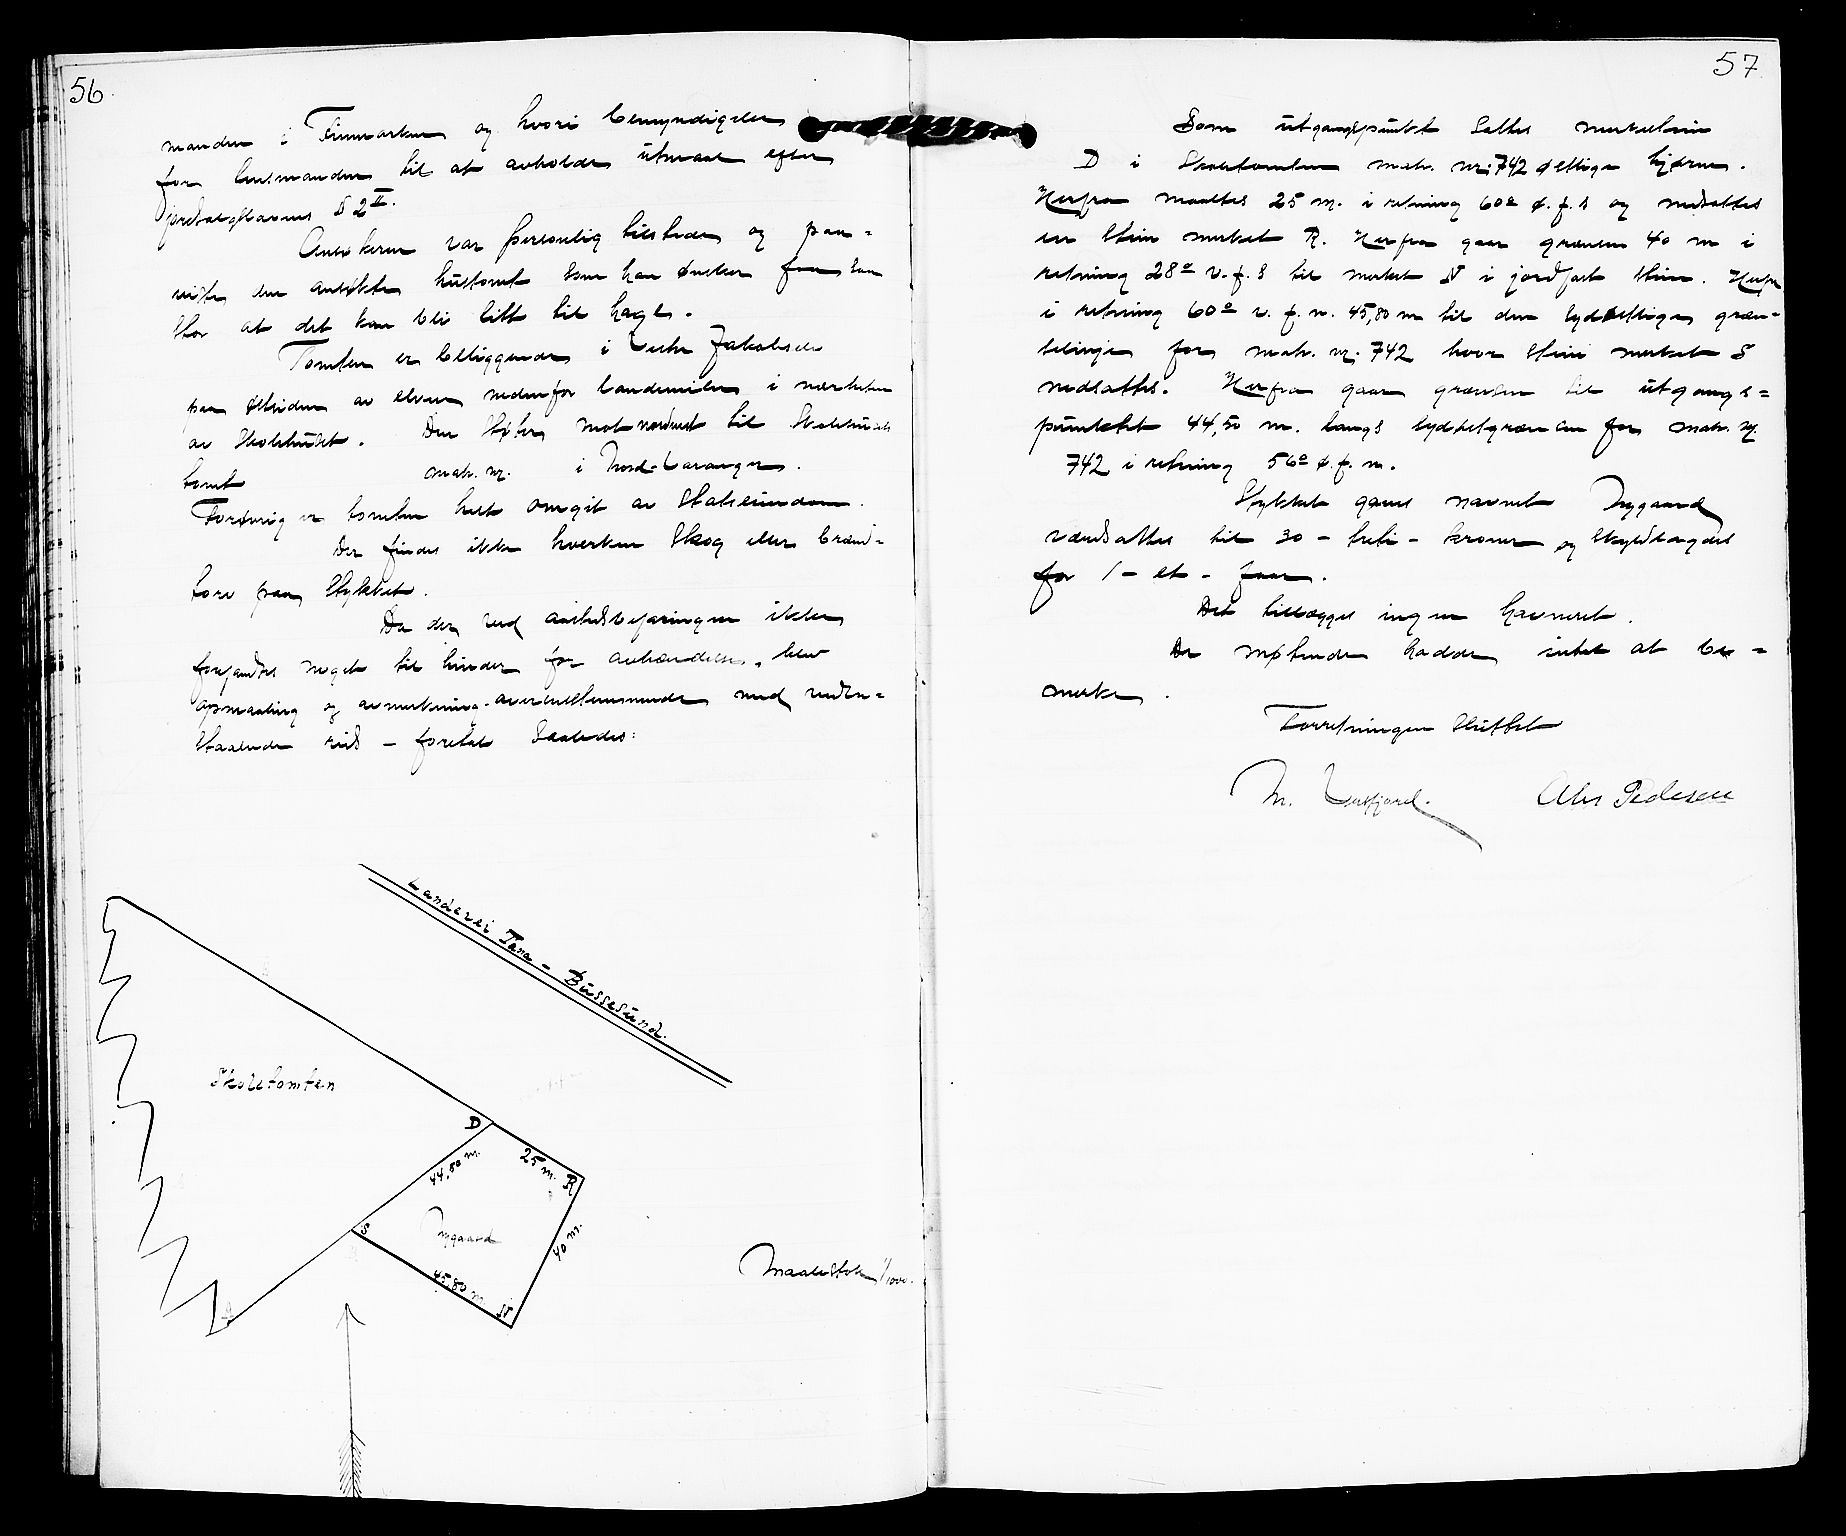 56
manden i Finmarken og hvori bemyndigelse
for lensmanden til at avholde utmaal efter
jordsalgslovens § 2 II.
Ansøkeren var personlig tilstede og paa-
viste den ansøkte hustomt som han ønsker saa
stor at det kan bli litt til hage.
Tomten er beliggende i Vestre Jakobselv
paa østsiden av elven nedenfor landeveien i nærheten
av skolehuset. Den støter mot nordvest til skolehusets
tomt matr. nr. i Nord-Varanger.
Forøvrig er tomten helt omgit av Statseiendom.
Der findes ikke hverken skog eller brænd-
torv paa stykket.
Da der ved aastedsbefaringen ikke
forefandtes noget til hinder for avhændelse, blev
opmaaling og avmerkning - overensstemmende med neden-
staaende rids - foretat saaledes:
Landevei Tana - Bussesund.
Skoletomten
D
25 m.
44,50 m.
R
S
Nygaard
40 m.
45,80 m.
N
Maalestok 1/1000.
57
Som utgangspunkt sattes merkesten
D i Skoletomten matr. nr. 742 østlige hjørne.
Herfra maaltes 25 m. i retning 60° ø. f. s og nedsattes
en sten merket R. Herfra gaar grænsen 40 m i
retning 28° v. f. s til merket N i jordfast sten. Herfra
i retning 60° v. f. n. 45,80 m til den sydøstlige græn-
selinje for matr. nr. 742 hvor sten merket S
nedsattes. Herfra gaar grænsen til utgangs-
punktet 44,50 m. langs sydøstgrænsen for matr. nr.
742 i retning 56° ø. f. n.
Stykket gaves navnet Nygaard
værdsattes til 30 - treti - kroner og skyldlagdes
for 1 - et - øre.
Det tillægges ingen havneret.
De møtende hadde intet at be-
merke.
Forretningen sluttet
Alex Pedersen